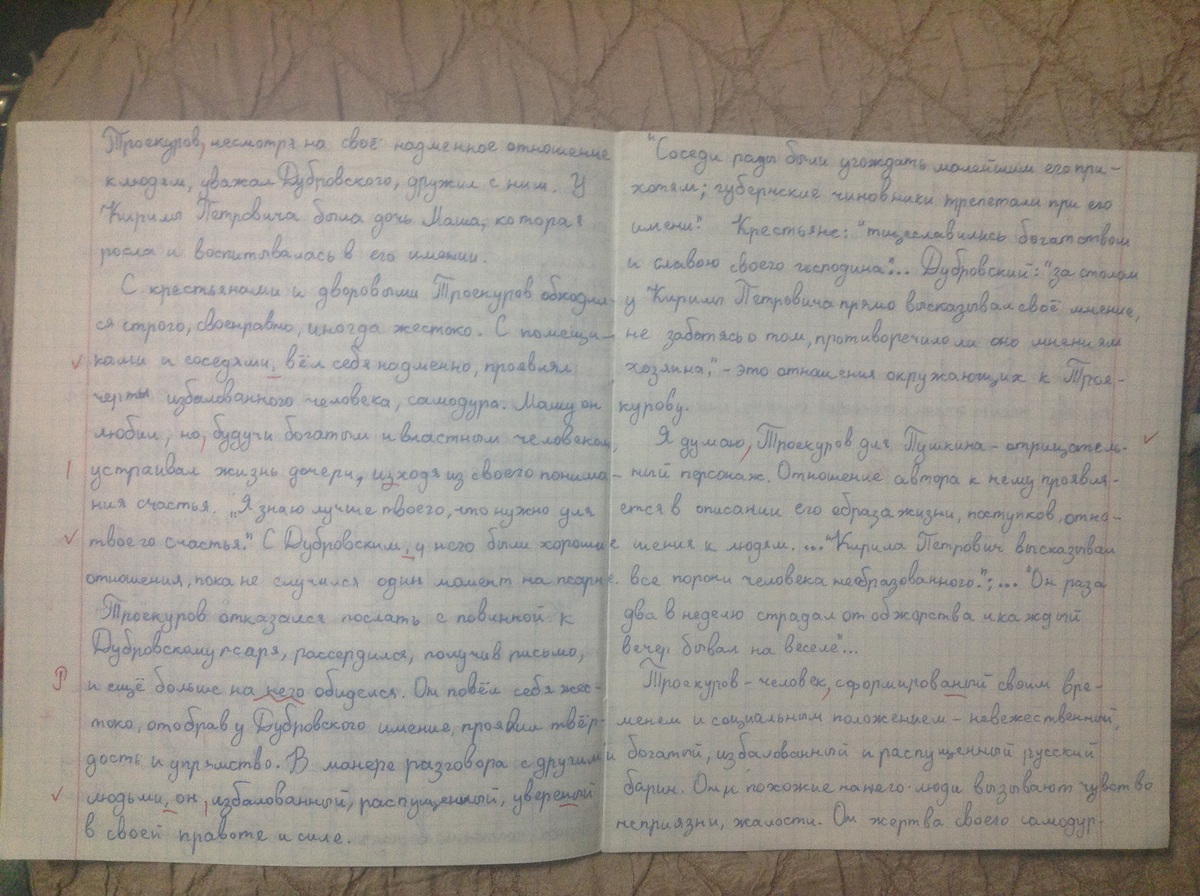 Троекуров, несмотря на своё надменное отношение
к людям, уважал Дубровского, дружил с ним. У
Кирилы Петровича была дочь Маша, которая
росла и воспитывалась в его имении.
С крестьянами и дворовыми Троекуров обходил-
ся строго, своенравно, иногда жестоко. С помещи-
ками и соседями, вёл себя надменно, проявлял
черты избалованного человека, самодура. Машу он
любил, но, будучи богатым и властным человеком,
устраивал жизнь дочери, изходя из своего понима-
ния счастья. „Я знаю лучше твоего, что нужно для
твоего счастья." С Дубровским, у него были хорошие
отношения, пока не случился один момент на псарне.
Троекуров отказался послать с повинной к
Дубровскому псаря, рассердился, получив письмо,
и ещё больше на него обиделся. Он повёл себя жес-
токо, отобрав у Дубровского имение, проявил твёр-
дость и упрямство. В манере разговора с другими
людьми, он, избалованный, распущенный, увереный
в своей правоте и силе.
"Соседи рады были угождать малейшим его при-
хотям; губернские чиновники трепетали при его
имени." Крестьяне: "тщеславились богатством
и славою своего господина"... Дубровский: "за столом
у Кирилы Петровича прямо высказывал своё мнение,
не заботясь о том, противоречило ли оно мнениям
хозяина", - это отношения окружающих к Трое-
курову.
Я думаю, Троекуров для Пушкина - отрицатель-
ный персонаж. Отношение автора к нему проявля-
ется в описании его образа жизни, поступков, отно-
шения к людям. ..."Кирила Петрович высказывал
все пороки человека необразованного."; ... "Он раза
два в неделю страдал от обжорства и каждый
вечер бывал на веселе"...
Троекуров - человек, сформированый своим вре-
менем и социальным положением - невежественный,
богатый, избалованный и распущенный русский
барин. Он и похожие на него люди вызывают чувство
неприязни, жалости. Он жертва своего самодур-